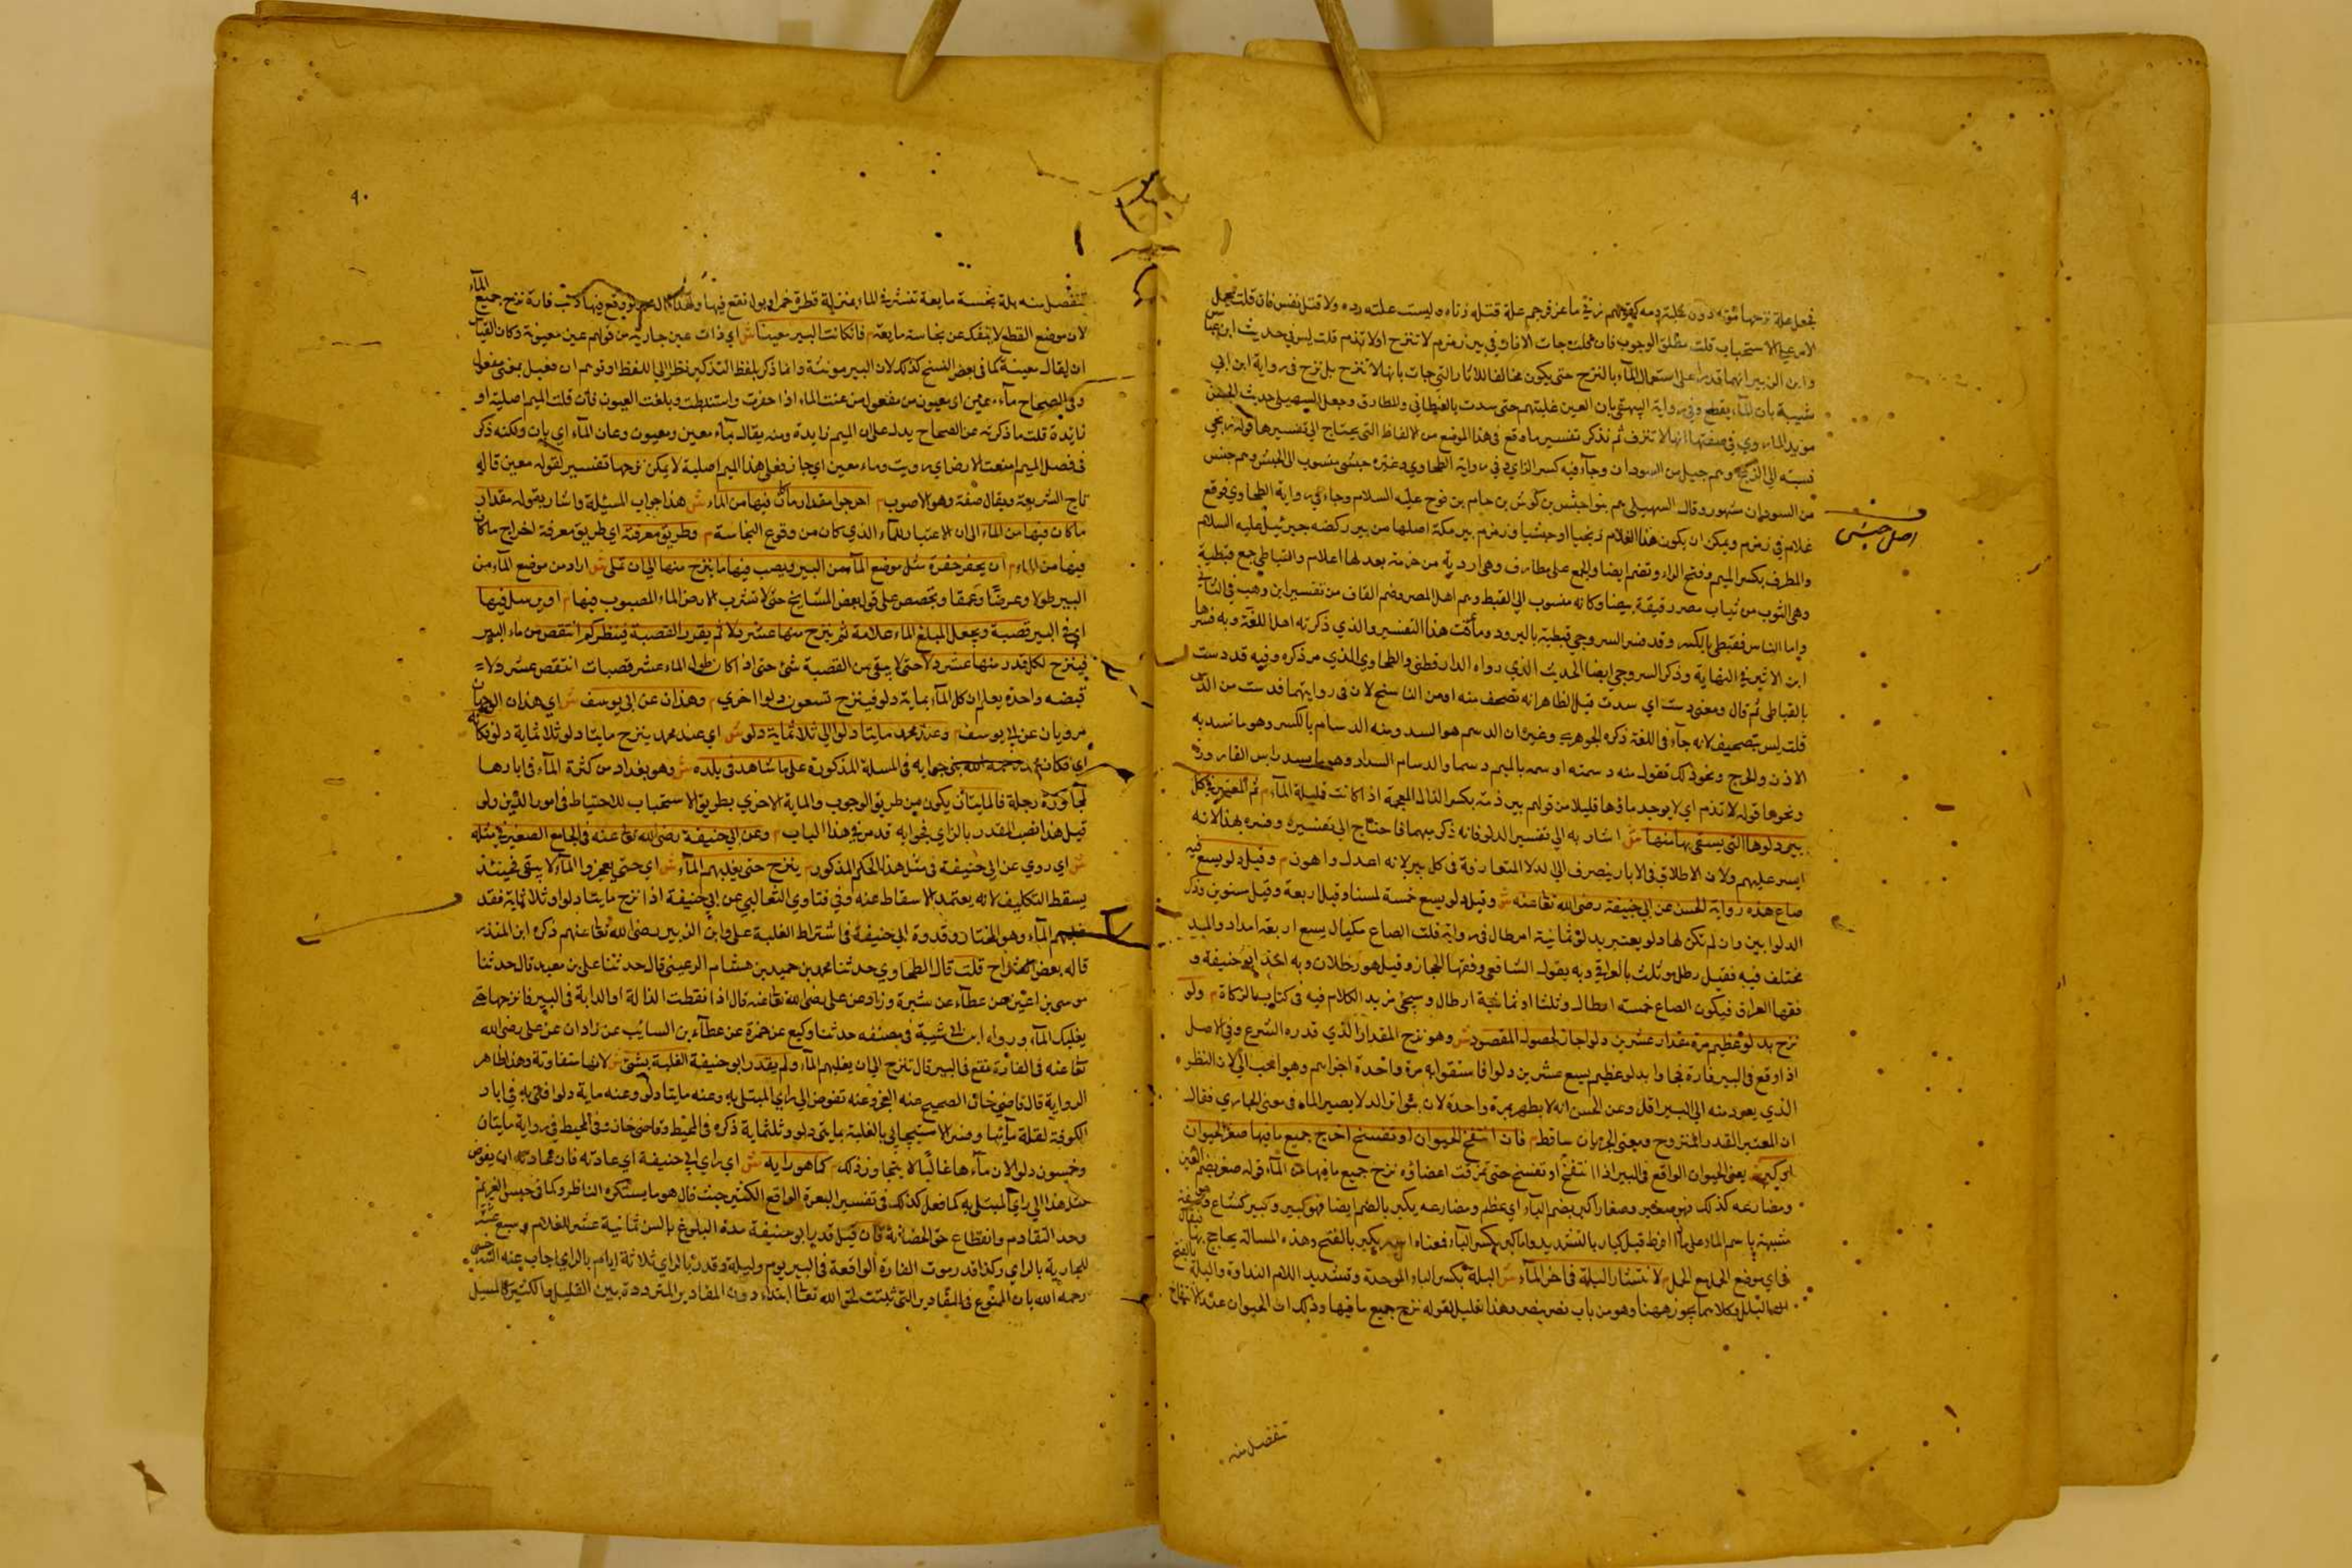 فجعل علة نزحها موته دون غلبة دمه كقولهم زنى ماعز فرجم علة قتله زناه وليست علته رده ولا قتل نفس فان قلت يحمل
الامر على الاستحباب قلت مطلق الوجوب فان قلت جات الاثار في بير زمزم لا تنزح ولا تذم قلت ليس في حديث ابن عباس
وابن الزبير انهما قدرا على استعمال الماء بالنزح حتى يكون مخالفا للاثار التي جات بانها لا تنزح بل نزح في رواية ابن ابي
شيبة بان الماء يقطع وفي رواية البيهقي بان العين غلبتهم حتى سدت بالقباطي والمطارف وجعل السهيلي حديث الحبشي
مويد الما روي في صفتها انها لا تنزف ثم نذكر تفسير ما وقع في هذا الموضع من الالفاظ التي يحتاج الى تفسيرها قوله زنجي
نسبة الى الزنج وهم جيل من السودان وجاء فيه كسر الزاي وفي رواية الطحاوي وغيره حبشي منسوب الى الحبش وهم جنس
من السودان مشهور وقال السهيلي هم بنو احبش بن كوش بن حام بن نوح عليه السلام وجاء في رواية الطحاوي فوقع
غلام في زمزم ويمكن ان يكون هذا الغلام زنجيا او حبشيا وزمزم بير مكة اصلها من بير ركضه جبرئيل عليه السلام
اصل حبش
والمطرف بكسر الميم وفتح الراء وتضم ايضا والجمع على مطارف وهي اردية من خز مربعة لها اعلام والقباطي جمع قبطية
وهي الثوب من ثياب مصر رقيقة بيضا وكانه منسوب الى القبط وهم اهل المصر وضم القاف من تفسير ابن وهب في الثياب
واما الناس فقبطي بالكسر وقد فسر السروجي قبطية بالبرود وما أمت هذا التفسير والذي ذكرته اهل اللغة وبه فسرها
ابن الاثير في النهاية وذكر السروجي ايضا الحديث الذي رواه الدارقطني والطحاوي الذي مر ذكره وفيه قد دست
بالقباطي ثم قال ومعنى دست اي سدت قيل الظاهر انه تصحف منه او من الناسخ لان في روايتهما فدست من الدس
قلت ليس بتصحيف لانه جاء في اللغة ذكره الجوهري وغيره ان الدسم هو السد ومنه الدسام بالكسر وهو ما تسد به
الاذن والجرح ونحو ذلك فقوله منه دسمته ادسمه بالميم دسما والدسام السداد وهو ما يسد راس القارورة
ونحوها قوله لا تذم اي لا يوجد ماؤها قليلا من قولهم بير ذمة بكسر الذال المعجمة اذا كانت قليلة الماء م ثم المعتبر في كل
بير دلوها التي يستقى بها منها ش اشار به الى تفسير الدلو فانه ذكر مبهما فاحتاج الى تفسيره وفسره بهذا لانه
ايسر عليهم ولان الاطلاق في الابار ينصرف الى الدلاء المتعارفة في كل بير لانه اعدل واهون م وقيل دلو يسع فيه
صاع هذه رواية الحسن عن ابي حنيفة رضي الله تعالى عنه ش وقيل دلو يسع خمسة امنا وقيل اربعة وقيل ستون وذكر
الدلوا بين وان لم تكن لها دلو يعتبر بدلو ثمانية ارطال في رواية قلت الصاع مكيال يسع اربعة امداد والمد
مختلف فيه فقيل رطل وثلث بالعراقي وبه يقول الشافعي وفقها الحجاز وقيل هو رطلان وبه اخذ ابو حنيفة و
فقها العراق فيكون الصاع خمسة ارطال وثلثا او ثمانية ارطال وسيجيء مزيد الكلام فيه في كتاب الزكاة م ولو
نزح بدلو عظيم مرة مقدار عشرين دلوا جاز لحصول المقصود ش وهو نزح المقدار الذي قدره الشرع وفي الاصل
اذا وقع في البير فارة فجاوا بدلو عظيم يسع عشرين دلوا فاستقوا به مرة واحدة اجزاهم وهو احب الي لان القطر
الذي يعود منه الى البير اقل وعن الحسن انه لا يطهر بمرة واحدة لان بتواتر الدلا يصير الماء في معنى الجاري فقال
ان المعتبر القدر المنزوح ومعنى الجريان ساقط م فان انتفخ الحيوان او تفسخ اخرج جميع ما فيها صغر الحيوان
او كبر ش يعني الحيوان الواقع في البير اذا انتفخ او تفسخ حتى تمزقت اعضاؤه نزح جميع ما فيها من الماء قوله صغر بضم الغين
ومضارعه كذلك فهو صغير وصغار اكبر بضم الباء اي عظم ومضارعه يكبر بالضم ايضا فهو كبير وكبير
لانتشار البلة في اجزاء الماء ش البلة بكسر الباء الموحدة وتشديد اللام النداوة والبلة بالفتح
البلل وكلاهما يجوز ههنا وهو من باب نصر ينصر وهذا تعليل لقوله نزح جميع ما فيها وذلك ان الحيوان عند الانتفاخ
تنفصل منه
٩٠
تنفصل منه بلة نجسة مايعة تنتشر في الماء بمنزلة قطرة خمر او بول تقع فيها ولهذا قال محمد لو وقع فيها ذنب فارة نزح جميع الماء
لان موضع القطع لا ينفك عن نجاسة مايعة م فان كانت البير معينا ش اي ذات عين جارية من قولهم عين معيونة وكان القياس
ان يقال معينة كما في بعض النسخ كذلك لان البير مونثة وانما ذكر بلفظ التذكير نظرا الى اللفظ او توهم ان فعيل بمعنى مفعول
وفي الصحاح ماء معين اي معيون من مفعول من عنت الماء اذا حفرت واستنبطت وبلغت العيون فان قلت الميم اصلية او
زايدة قلت ما ذكرته عن الصحاح يدل على ان الميم زايدة ومنه يقال ماء معين ومعيون وعان الماء اي بان ولكنه ذكر
في فصل الميم امعنت الارض اي رويت وماء معين اي جار فعلى هذا الميم اصلية لا يمكن نزحها تفسير لقوله معين قاله
تاج الشريعة ويقال صفة وهو الاصوب م اخرجوا مقدار ما كان فيها من الماء ش هذا جواب المسئلة واشار بقوله مقدار
ما كان فيها من الماء الى ان الاعتبار للماء الذي كان من وقوع النجاسة م وطريق معرفته اي طريق معرفة اخراج ما كان
فيها من الماء م ان يحفر حفرة مثل موضع الماء من البير ويصب فيها ما ينزح منها الى ان تملى ش اراد من موضع الماء من
البير طولا وعرضا وعمقا ويجصص على قول بعض المشايخ حتى لا تشرب الارض الماء المصبوب فيها م او يرسل فيها
اي في البير قصبة ويجعل المبلغ الماء علامة ثم ينزح منها عشر دلا ثم يقدر القصبة فينظر كم انتقص من ماء البير
فينزح لكل قدر منها عشر دلا حتى لا يبقى من القصبة شئ حتى اذا كان طول الماء عشر قصبات انتقص عشر دلاء
قبضه واحدة يعلم ان كل الماء بماية دلو فينزح تسعون دلوا اخرى م وهذان عن ابي يوسف ش اي هذان الوجهان
مرويان عن ابي يوسف م وعند محمد مايتا دلوا الى ثلاثماية دلو ش اي عند محمد ينزح مايتا دلو ثلاثماية دلو فكانه
اي فكان محمد رحمه الله بنى جوابه في المسلة المذكورة على ما شاهد في بلده ش وهو بغداد من كثرة الماء في ابارها
لمجاورة دجلة فالمايتان يكون من طريق الوجوب والماية الاخرى بطريق الاستحباب للاحتياط في امور الدين ولو
قيل هذا نصب المقدر بالراي فجوابه قد مر في هذا الباب م وعن ابي حنيفة رضي الله تعالى عنه في الجامع الصغير في مثله
ش اي روي عن ابي حنيفة في مثل هذا الحكم المذكور م ينزح حتى يغلبهم الماء ش اي حتى يعجزوا الماء لا يبقى فحينئذ
يسقط التكليف لانه يعتمد الاسقاط عنه وفي فتاوي الثعالبي عن ابي حنيفة اذا نزح مايتا دلوا وثلاثماية فقد
غلبهم الماء وهو المختار وقدوة ابي حنيفة في اشتراط الغلبة علي وابن الزبير رضي الله تعالى عنهم ذكره ابن المنذر
قاله بعض الشراح قلت قال الطحاوي حدثنا محمد بن حميد بن هشام الرعيني قال حدثنا علي بن معبد قال حدثنا
موسى بن اعين عن عطاء عن ميسرة وزاد عن علي رضي الله تعالى عنه قال اذا سقطت الفارة او الدابة في البير فانزحها حتى
يغلبك الماء ورواه ابن ابي شيبة في مصنفه حدثنا وكيع عن حمزة عن عطاء بن السايب عن زادان عن علي رضي الله
تعالى عنه في الفارة تقع في البير قال تنزح الى ان يغلبهم الماء ولم يقدر ابو حنيفة الغلبة بشئ ش لانها متفاوتة وهذا ظاهر
الرواية قال قاضي خان الصحيح عنه العجز وعنه تفوض الى راي المبتلى به وعنه مايتا دلو وعنه ماية دلوا فتى به في ابار
الكوفة لقلة مائها وفسر الاسبيجابي بالغلبة بمايتى دلو وثلثماية ذكره في المحيط وقاضى خان وفي المحيط في رواية مايتان
وخمسون دلوا لان ماءها غالبا لا يتجاوز ذلك م كما هو رايه ش اي راي ابي حنيفة اي عادته فان عادته ان يفوض
مثل هذا الى راي المبتلى به كما فعل كذلك في تفسير البعرة الواقع الكثير حيث قال هو ما يستكره الناظر وكما في حبس الغريم
وحد التقادم وانقطاع حق الحضانة فان قيل قدر ابو حنيفة مدة البلوغ بالسن ثمانية عشر للغلام وسبع عشر
للجارية بالراي وكذا قدر موت الفارة الواقعة في البير يوم وليلة وقدر بالراي ثلاثة ايام بالراي اجاب عنه السرخسي
رحمه الله بان الممنوع في المقادير التي ثبتت لحق الله تعالى ابتداء دون المقادير المترددة بين القليل والكثير كالمسيل